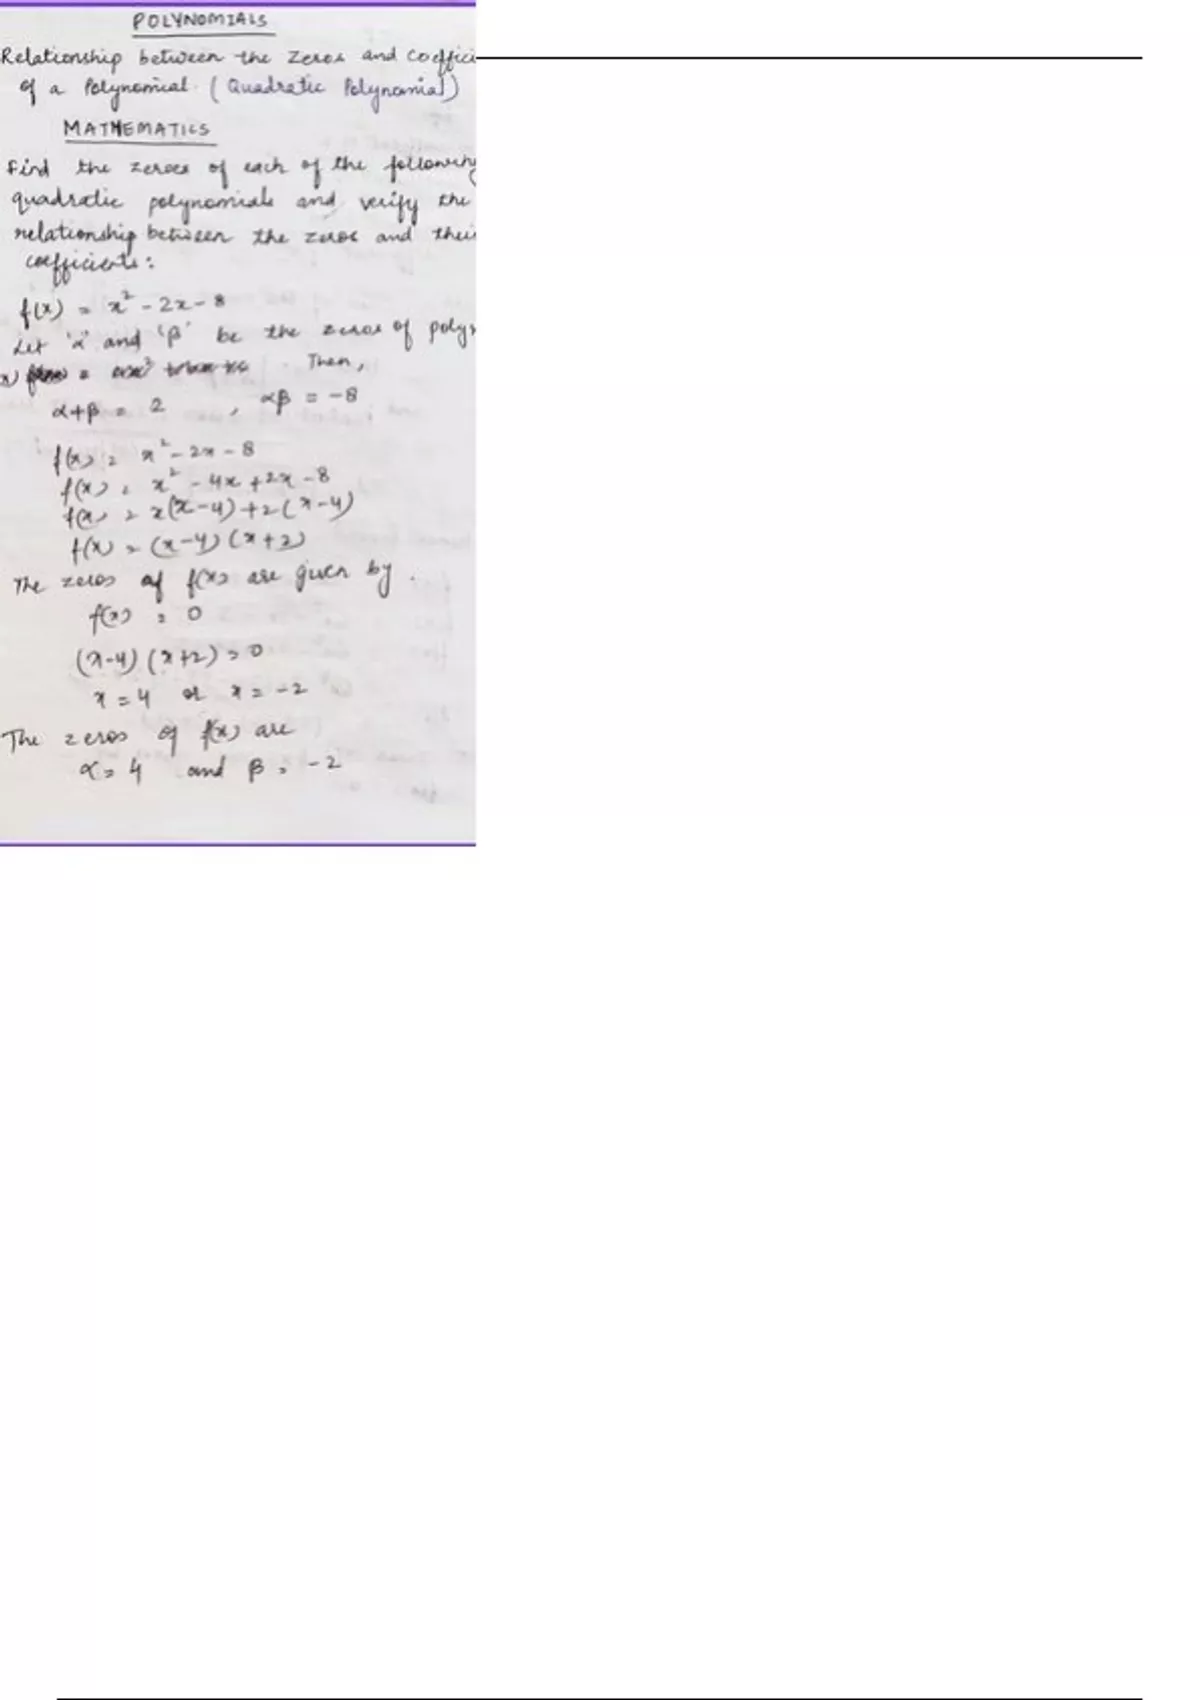 POLYNOMIALS
Relationship between the Zeros and Coeffici
of a Polynomial. (Quadratic Polynomial)
MATHEMATICS
Find the zeroes of each of the following
quadratic polynomials and verify the
relationship between the zeros and their
coefficients:
f(x) = x² - 2x - 8
Let 'α' and 'β' be the zeros of polyn
Then,
α+β = 2 , αβ = -8
f(x) = x² - 2x - 8
f(x) = x² - 4x + 2x - 8
f(x) = x(x-4) + 2(x-4)
f(x) = (x-4)(x+2)
The zeros of f(x) are given by.
f(x) = 0
(x-4)(x+2) = 0
x = 4 or x = -2
The zeros of f(x) are
α = 4 and β = -2